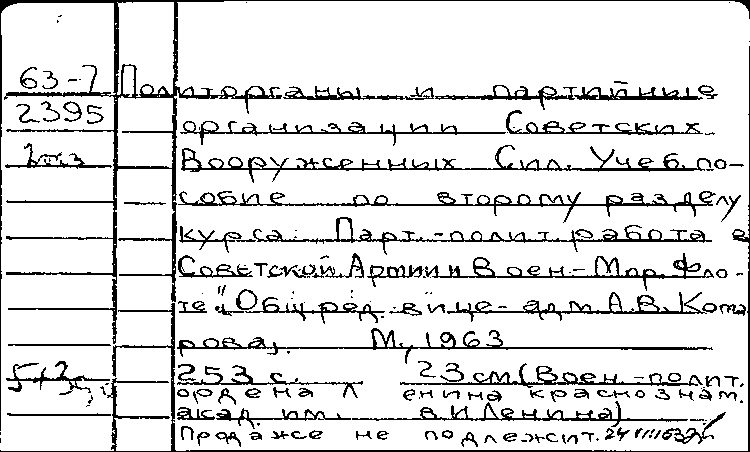 63-7 Политорганы и партийные
2395 организации Советских
2экз Вооруженных Сил. Учеб. по-
собие по второму разделу
курса: Парт.-полит. работа в
Советской Армии и Воен-Мор. Фло-
те". Общ. ред. вице-адм. А.В. Кома
рова. М., 1963
253 с. 23 см. (Воен.-полит.
ордена Л енина краснознам.
акад. им. В.И. Ленина).
Продаже не подлежит. 24 VIII 63